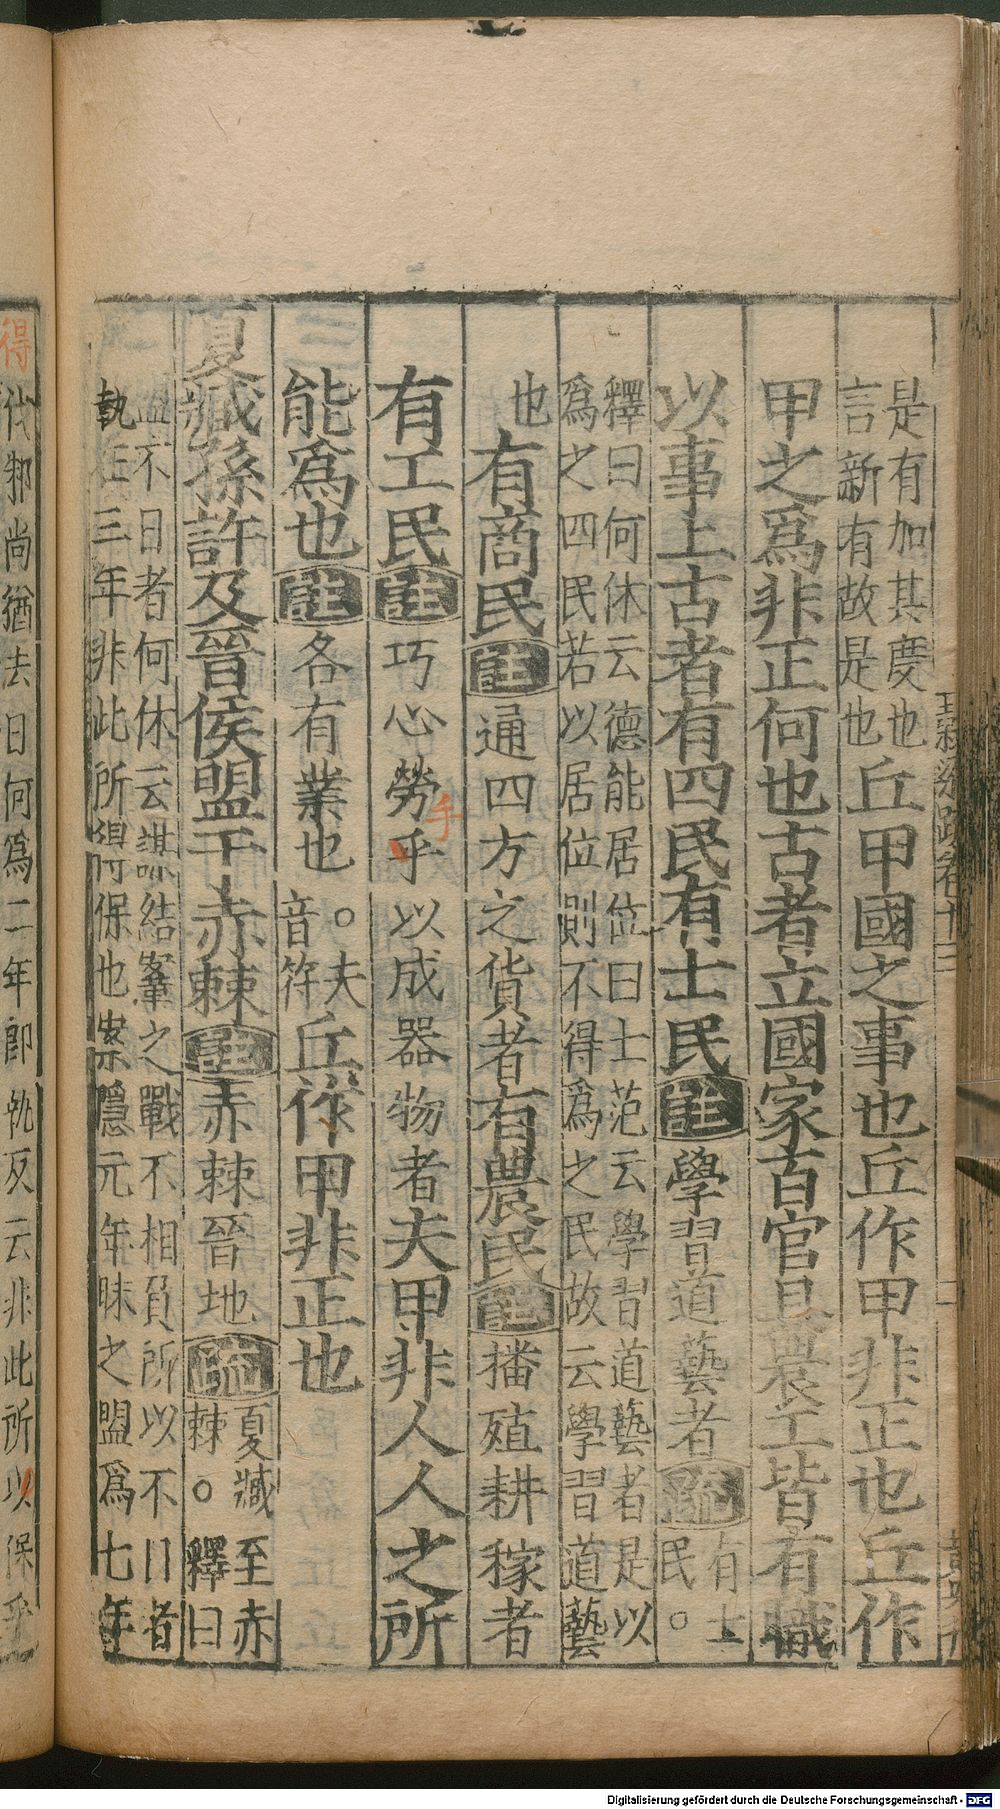 是有加其度也
言新有故是也
丘甲國之事也丘作甲非正也丘作
甲之爲非正何也古者立國家百官具農工皆有職
以事上古者有四民有士民
註
學習道藝者
疏
有士
民○
釋曰何休云德能居位曰士范云學習道藝者是以
爲之四民若以居位則不得爲之民故云學習道藝
也
有商民
註
通四方之貨者
有農民
註
播殖耕稼者
有工民
註
巧心勞乎以成器物者
手
夫甲非人人之所
能爲也
註
各有業也
○夫
音符
丘作甲非正也
夏臧孫許及晉侯盟于赤棘
註
赤棘晉地
疏
夏臧至赤
棘○釋曰
盟不日者何休云謀結鞌之戰不相負所以不日者
執在三年非此所得保也案隱元年眛之盟爲七年
得
伐邾尚猶去日何爲二年卽執反云非此所以保乎
Digitalisierung gefördert durch die Deutsche Forschungsgemeinschaft - DFG